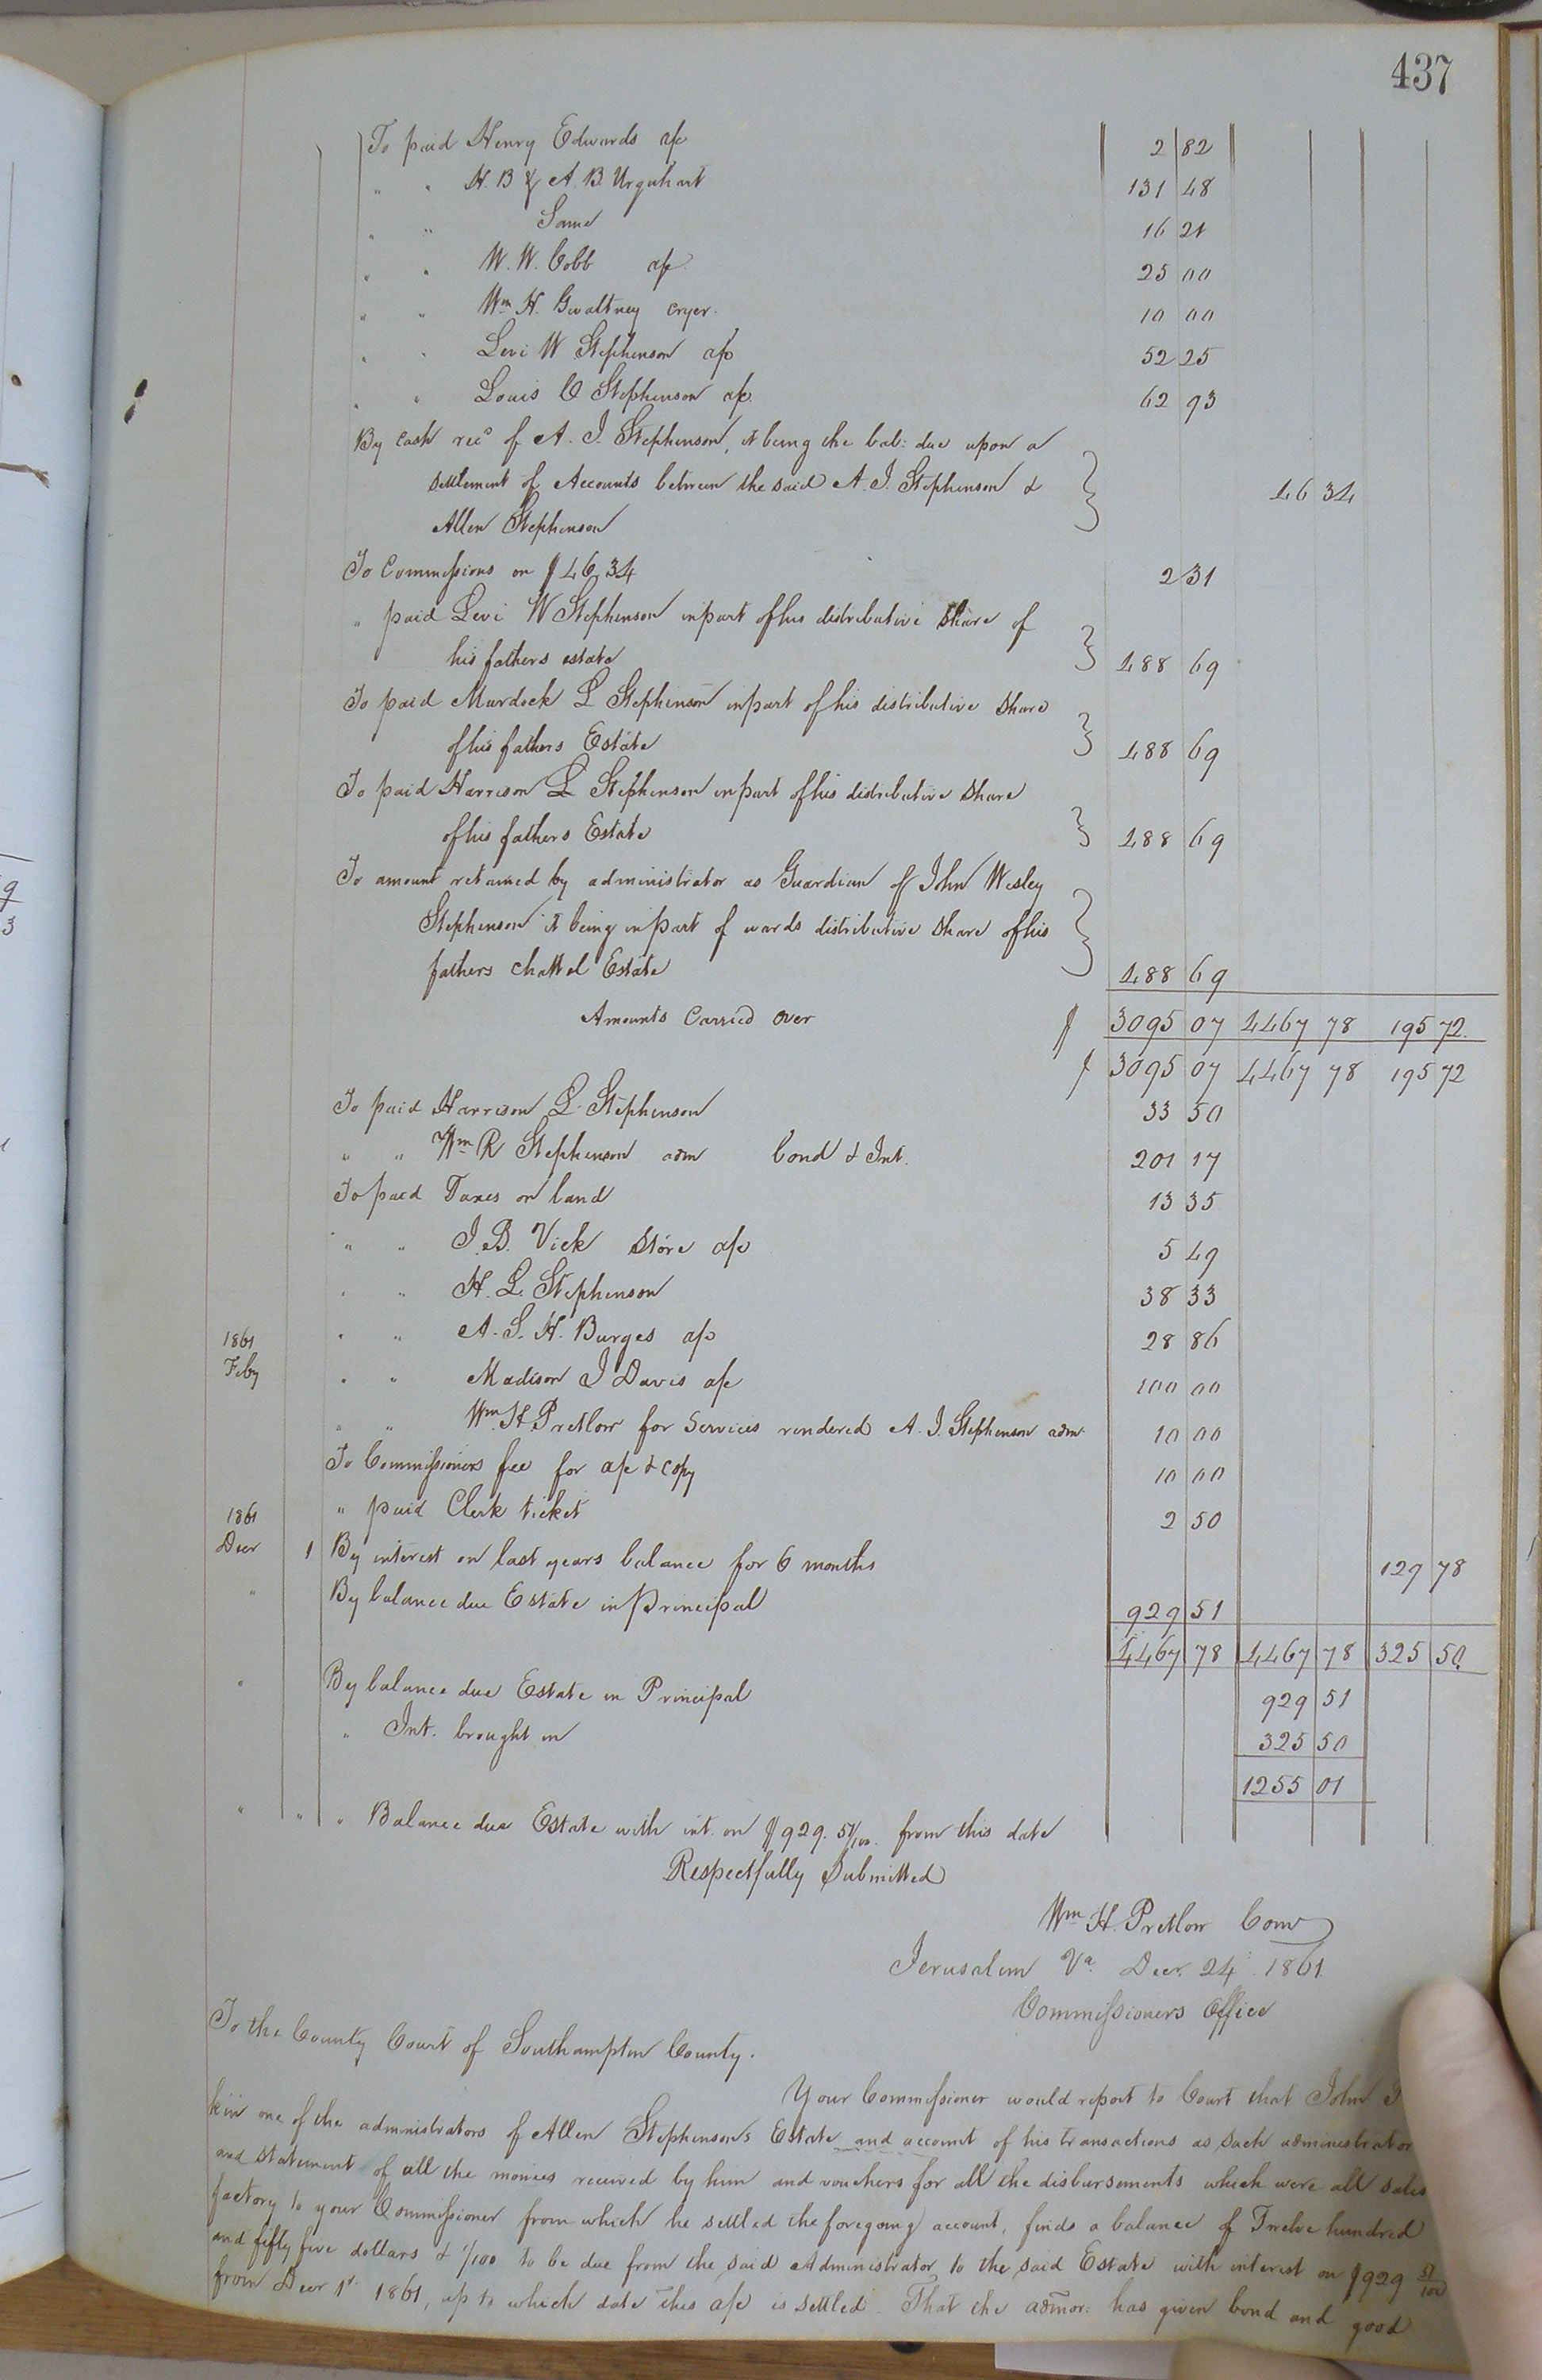 437
To paid Henry Edwards a/c 2 82
" " H. B & A. B. Urquhart 131 48
" " Same 16 21
" " W. W. Cobb a/c 25 00
" " Wm H. Gwaltney cryer. 10 00
" " Levi W Stephenson a/c 52 25
" " Louis C Stephenson a/c. 62 93
By cash recd of A. J. Stephenson, it being the bal: due upon a
settlement of Accounts between the said A. J. Stephenson & 46 34
Allen Stephenson
To Commissions on $46.34 2 31
" paid Levi W Stephenson in part of his distributive share of
his fathers estate 488 69
To paid Murdock L Stephenson in part of his distributive share
of his fathers Estate 488 69
To paid Harrison L Stephenson in part of his distributive share
of his fathers Estate 488 69
To amount retained by administrator as Guardian of John Wesley
Stephenson it being in part of wards distributive share of his
fathers chattel Estate 488 69
Amounts Carried over $ 3095 07 4467 78 195 72
$ 3095 07 4467 78 195 72
To paid Harrison L. Stephenson 33 50
" " Wm R Stephenson adm bond & Int. 201 17
To paid Taxes on land 13 35
" " J. B. Vick store a/c 5 49
" " H. L. Stephenson 38 33
1861 " " A. S. H. Burges a/c 28 86
Feby " " Madison J Davis a/c 100 00
" " Wm H Pretlow for services rendered A. J. Stephenson adm 10 00
To Commissioners fee for a/c & copy 10 00
1861 " paid Clerk ticket 2 50
Decr 1 By interest on last years balance for 6 months 129 78
" By balance due Estate in Principal 929 51
4467 78 4467 78 325 50
" By balance due Estate in Principal 929 51
" Int. brought in 325 50
1255 01
" " " Balance due Estate with int. on $929. 51/100. from this date
Respectfully Submitted
Wm H. Pretlow Com
Jerusalem Va. Decr. 24 1861
Commissioners Office
To the County Court of Southampton County.
Your Commissioner would report to Court that John
kin one of the administrators of Allen Stephenson's Estate and account of his transactions as such administrator
and statement of all the monies received by him and vouchers for all the disbursements which were all satis
factory to your Commissioner from which he settled the foregoing account, finds a balance of Twelve hundred
and fifty five dollars & 1/100 to be due from the said Administrator to the said Estate with interest on $929 51/100
from Decr 1st 1861, up to which date this a/c is settled. That the admor: has given bond and good